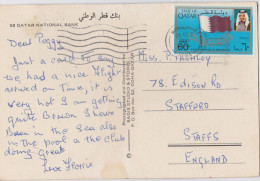 58 QATAR NATIONAL BANK
بنك قطر الوطني
Dear Peggy
Just a card to say
we had a nice flight
arrived on Time, it is
very hot I am getting
quite Brown I have
Been in the Sea also
in the pool a the club
doing great
Luv Florrie
STATE OF QATAR
دولة قطر
60
٦٠
Miss
78. Edison Rd
STAFFORD
STAFFS
ENGLAND